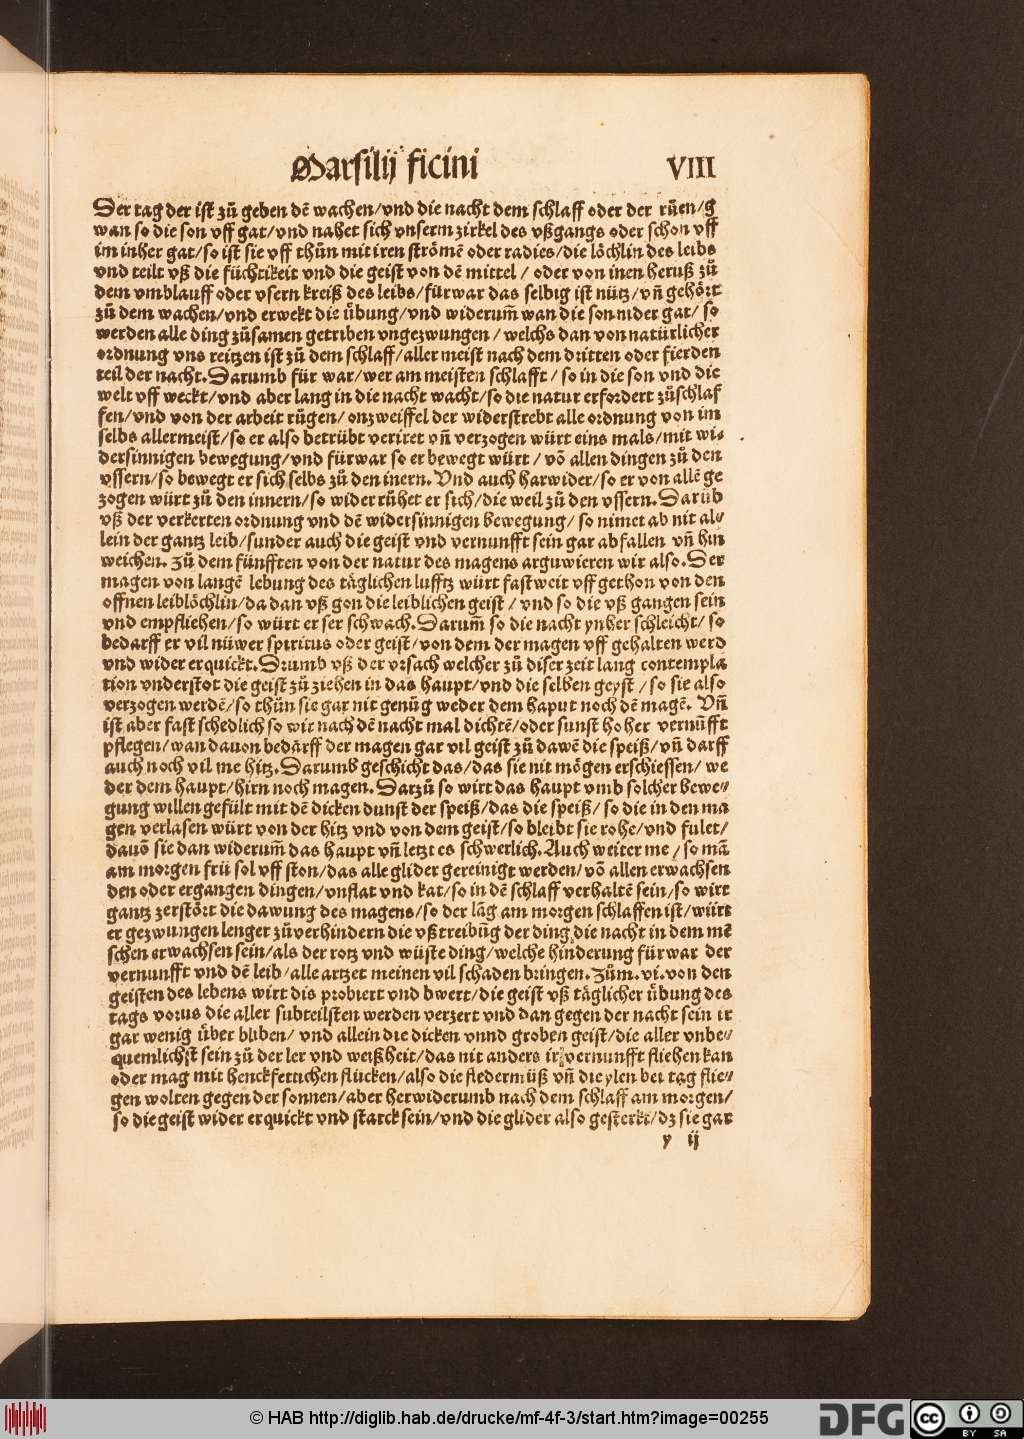 Marsilij ficini VIII
Der tag der ist zů geben dē wachen/vnd die nacht dem schlaff oder der růen/g
wan so die son vff gat/vnd nahet sich vnserm zirkel des vßgangs oder schon vff
im inher gat/so ist sie vff thůn mit iren strōmē oder radies/die löchlin des leibs
vnd teilt vß die füchtikeit vnd die geist von dē mittel / oder von inen heruß zů
dem vmblauff oder vsern kreiß des leibs/fürwar das selbig ist nütz/vñ gehört
zů dem wachen/vnd erwekt die übung/vnd widerum̄ wan die son nider gat/ so
werden alle ding zůsamen getriben vngezwungen / welchs dan von natürlicher
ordnung vns reitzen ist zů dem schlaff/aller meist nach dem dritten oder fierden
teil der nacht. Darumb für war/wer am meisten schlafft / so in die son vnd die
welt vff weckt/vnd aber lang in die nacht wacht/so die natur erfordert zůschlaf
fen/vnd von der arbeit rügen/onzweiffel der widerstrebt alle ordnung von im
selbs allermeist/so er also betrübt veriret vñ verzogen würt eins mals/mit wi⸗
dersinnigen bewegung/vnd fürwar so er bewegt würt / vō allen dingen zů den
vssern/so bewegt er sich selbs zů den inern. Vnd auch harwider/so er von allē ge
zogen würt zů den innern/so wider rühet er sich/die weil zů den vssern. Darüb
vß der verkerten ordnung vnd dē widersinnigen bewegung/ so nimet ab nit al⸗
lein der gantz leib/sunder auch die geist vnd vernunfft sein gar abfallen vñ hin
weichen. Zů dem fünfften von der natur des magens arguwieren wir also. Der
magen von langē lebung des täglichen lufftz würt fast weit vff gethon von den
offnen leiblöchlin/da dan vß gon die leiblichen geist / vnd so die vß gangen sein
vnd empfliehen/so würt er ser schwach. Darum̄ so die nacht ynher schleicht/ so
bedarff er vil nüwer spiritus oder geist/von dem der magen vff gehalten werd
vnd wider erquickt. Drumb vß der vrsach welcher zů diser zeit lang contempla
tion vnderstot die geist zů ziehen in das haupt/vnd die selben geyst / so sie also
verzogen werdē/so thůn sie gar nit genůg weder dem haput noch dē magē. Vñ
ist aber fast schedlich so wir nach dē nacht mal dichtē/oder sunst hoher vernūfft
pflegen/wan dauon bedārff der magen gar vil geist zů dawē die speiß/vñ darff
auch noch vil me hitz. Darumb geschicht das/das sie nit mögen erschiessen/ we
der dem haupt/hirn noch magen. Darzů so wirt das haupt vmb solcher bewe⸗
gung willen gefült mit dē dicken dunst der speiß/das die speiß/ so die in den ma
gen verlasen würt von der hitz vnd von dem geist/so bleibt sie rohe/vnd fulet/
dauō sie dan widerum̄ das haupt vñ letzt es schwerlich. Auch weiter me / so mā
am morgen frü sol vff ston/das alle glider gereinigt werden/vō allen erwachsen
den oder ergangen dingen/vnflat vnd kat/so in dē schlaff verhaltē sein/so wirt
gantz zerstört die dawung des magens/so der lāg am morgen schlaffen ist/würt
er gezwungen lenger zůverhindern die vßtreibūg der ding die nacht in dem mē
schen erwachsen sein/als der rotz vnd wüste ding/welche hinderung fürwar der
vernunfft vnd dē leib/alle artzet meinen vil schaden bringen. Zům. vi. von den
geisten des lebens wirt dis probiert vnd bwert/die geist vß täglicher übung des
tags vorus die aller subteilsten werden verzert vnd dan gegen der nacht sein ir
gar wenig über bliben/ vnd allein die dicken vnnd groben geist/die aller vnbe⸗
quemlichst sein zů der ler vnd weißheit/das nit anders ir vernunfft fliehen kan
oder mag mit henckfettichen flucken/also die fledermüß vñ die ylen bei tag flie⸗
gen wolten gegen der sonnen/aber herwiderumb nach dem schlaff am morgen/
so die geist wider erquickt vnd starck sein/vnd die glider also gesterkt/dz sie gar
y ij
© HAB http://diglib.hab.de/drucke/mf-4f-3/start.htm?image=00255
DFG cc BY SA